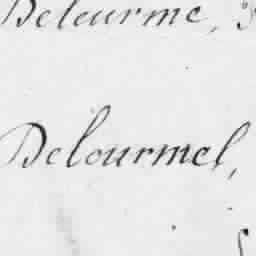 Deleurme,
Delourmel,